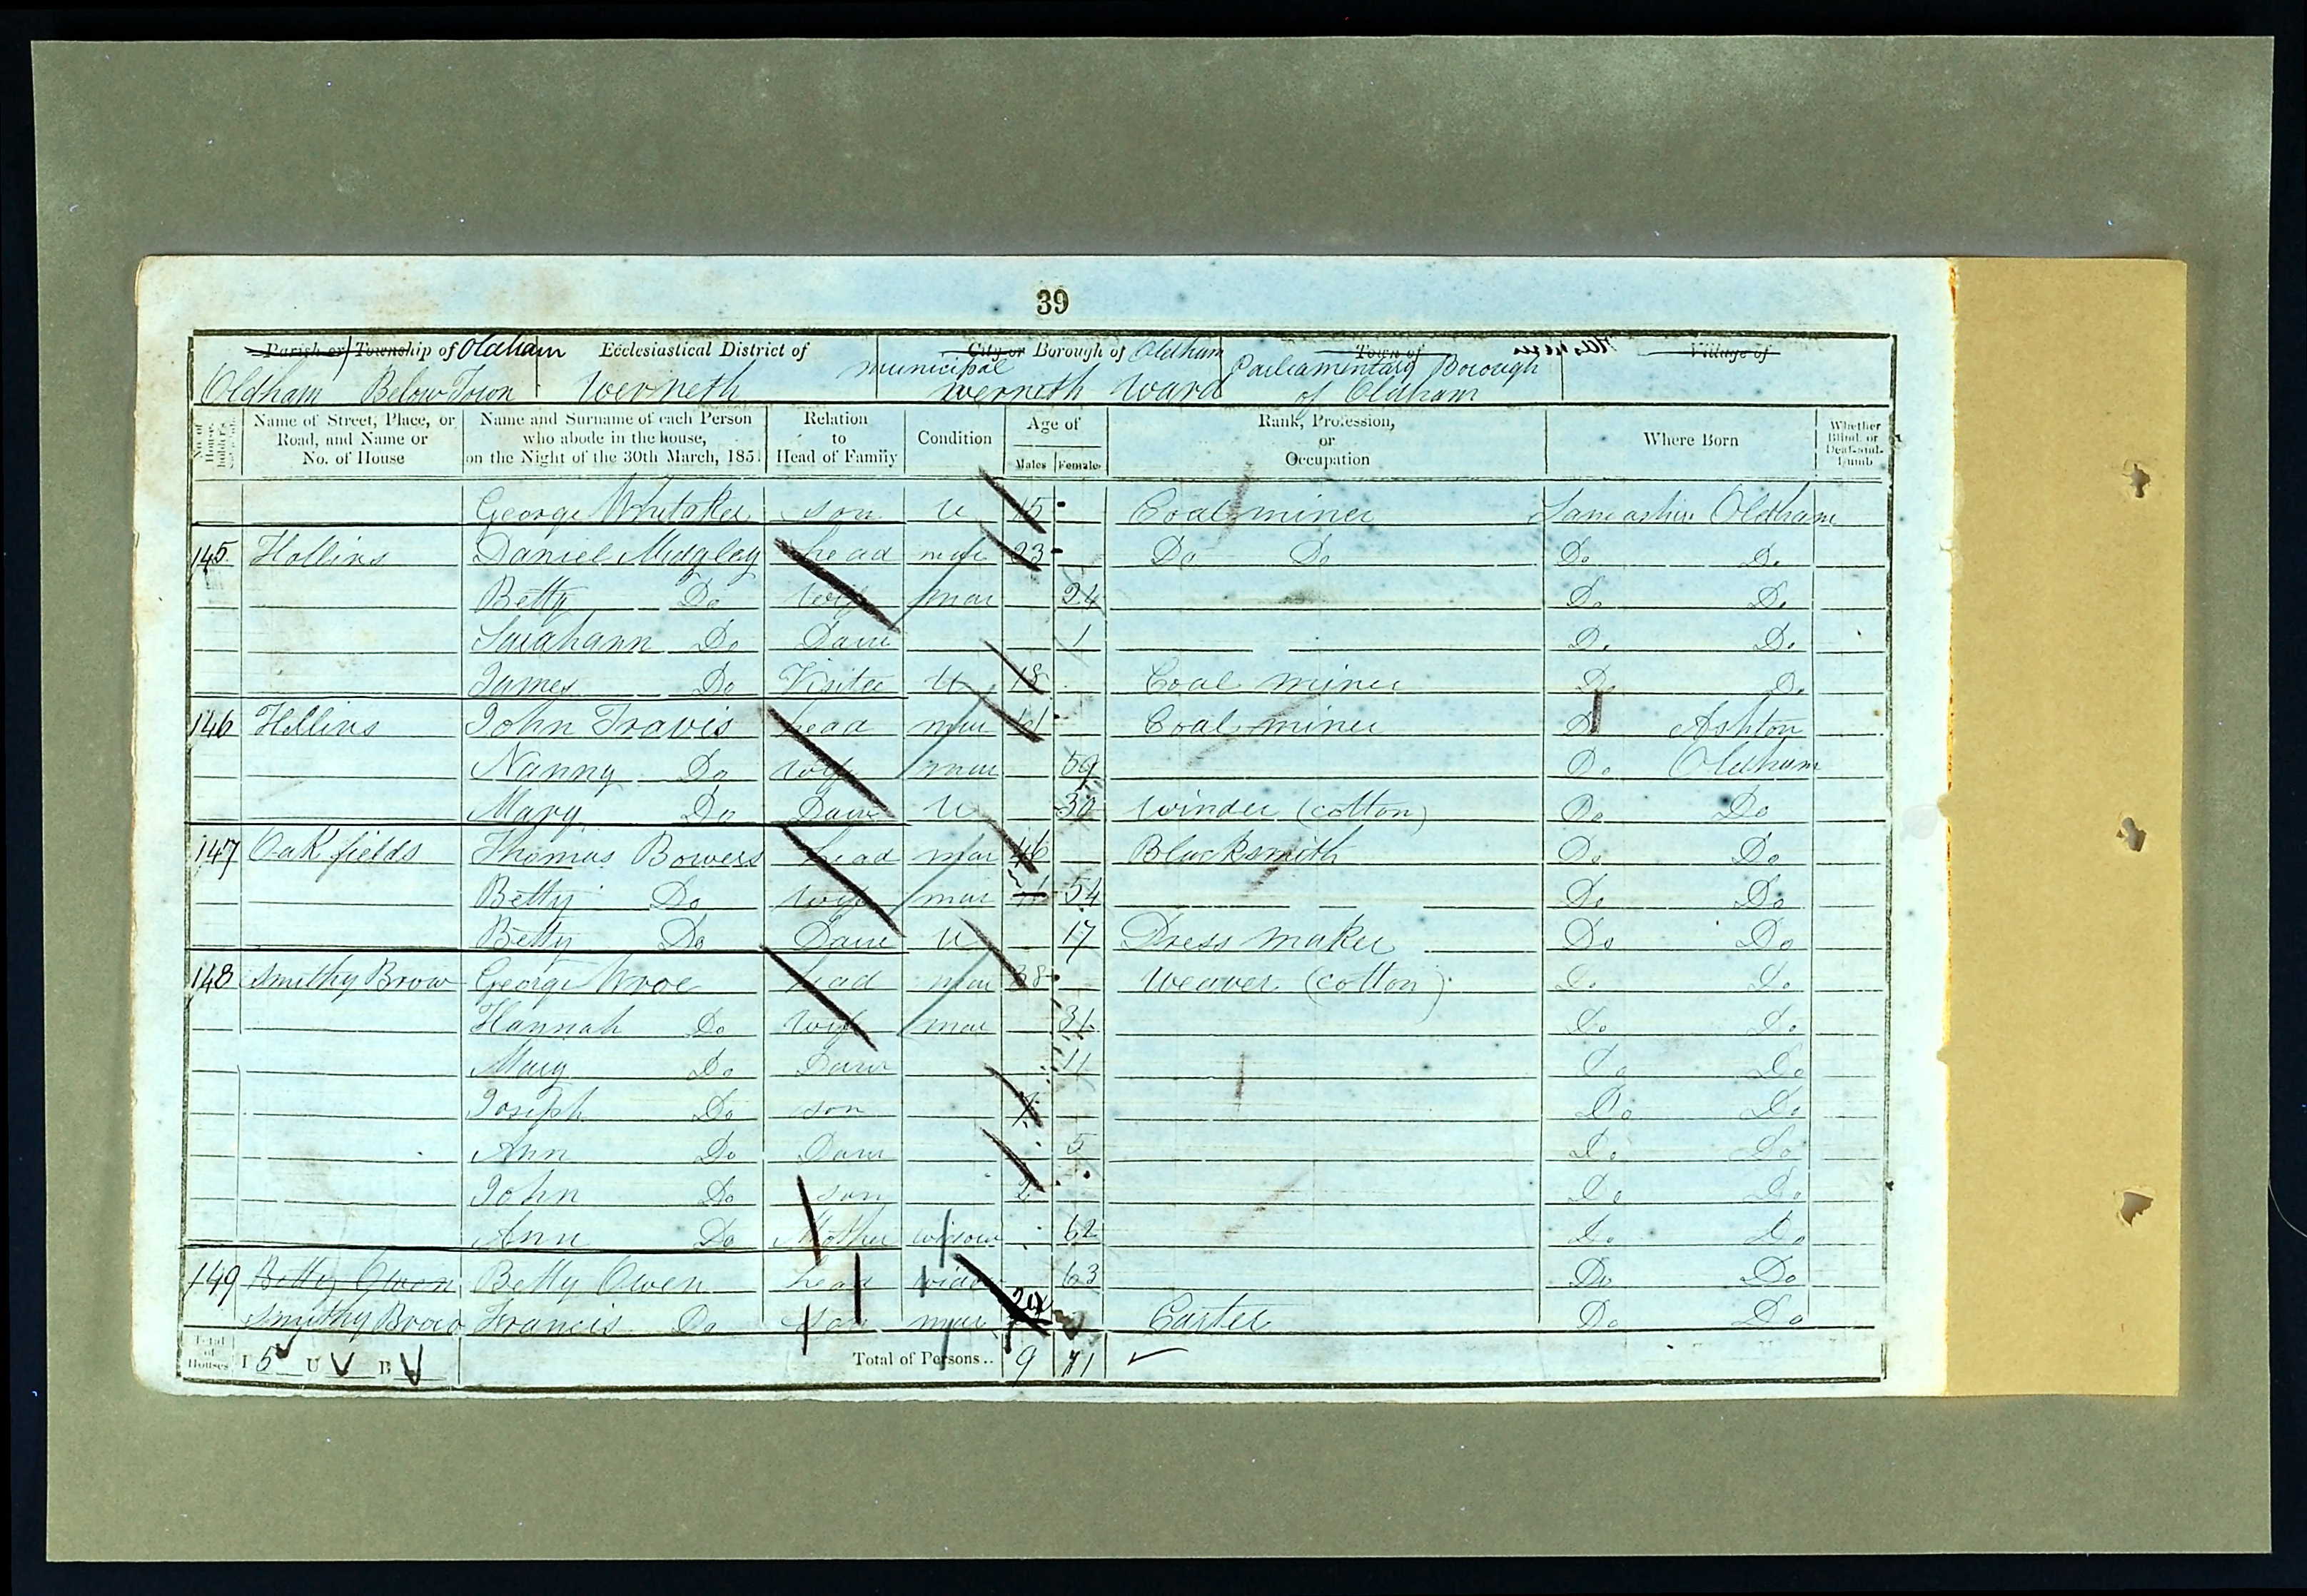 39
Parish or Township of Oldham Ecclesiastical District of City or Borough of Oldham Town of Village of
Oldham Below Town Werneth Municipal Werneth Ward Parliamentary Borough of Oldham
No. of House-holder's Name of Street, Place, or Road, and Name or No. of House Name and Surname of each Person who abode in the house, on the Night of the 30th March, 1851 Relation to Head of Family Condition Age of Males Females Rank, Profession, or Occupation Where Born Whether Blind, or Deaf-and-Dumb
George Whitaker son U 15 Coal miner Lancashire Oldham
145 Hollins Daniel Midgley head mar 23 Do Do Do Do
Betty Do wife mar 24 Do Do
Sarahann Do Daur 1 Do Do
James Do Visitor U 18 Coal miner Do Do
146 Hollins John Travis head mar 61 Coal miner Do Ashton
Nanny Do wife mar 59 Do Oldham
Mary Do Daur U 30 Winder (cotton) Do Do
147 Oak fields Thomas Bowers head mar 46 Blacksmith Do Do
Betty Do wife mar 54 Do Do
Betty Do Daur U 17 Dress maker Do Do
148 Smithy Brow George Wroe head mar 38 Weaver (cotton) Do Do
Hannah Do wife mar 31 Do Do
Mary Do Daur 11 Do Do
Joseph Do son Do Do
Ann Do Daur 5 Do Do
John Do son 2 Do Do
Ann Do Mother widow 62 Do Do
149 Betty Owen Betty Owen head widow 63 Do Do
Smithy Brow Francis Do son mar 29 Carter Do Do
Total of Houses I 5 U B Total of Persons.. 9 11